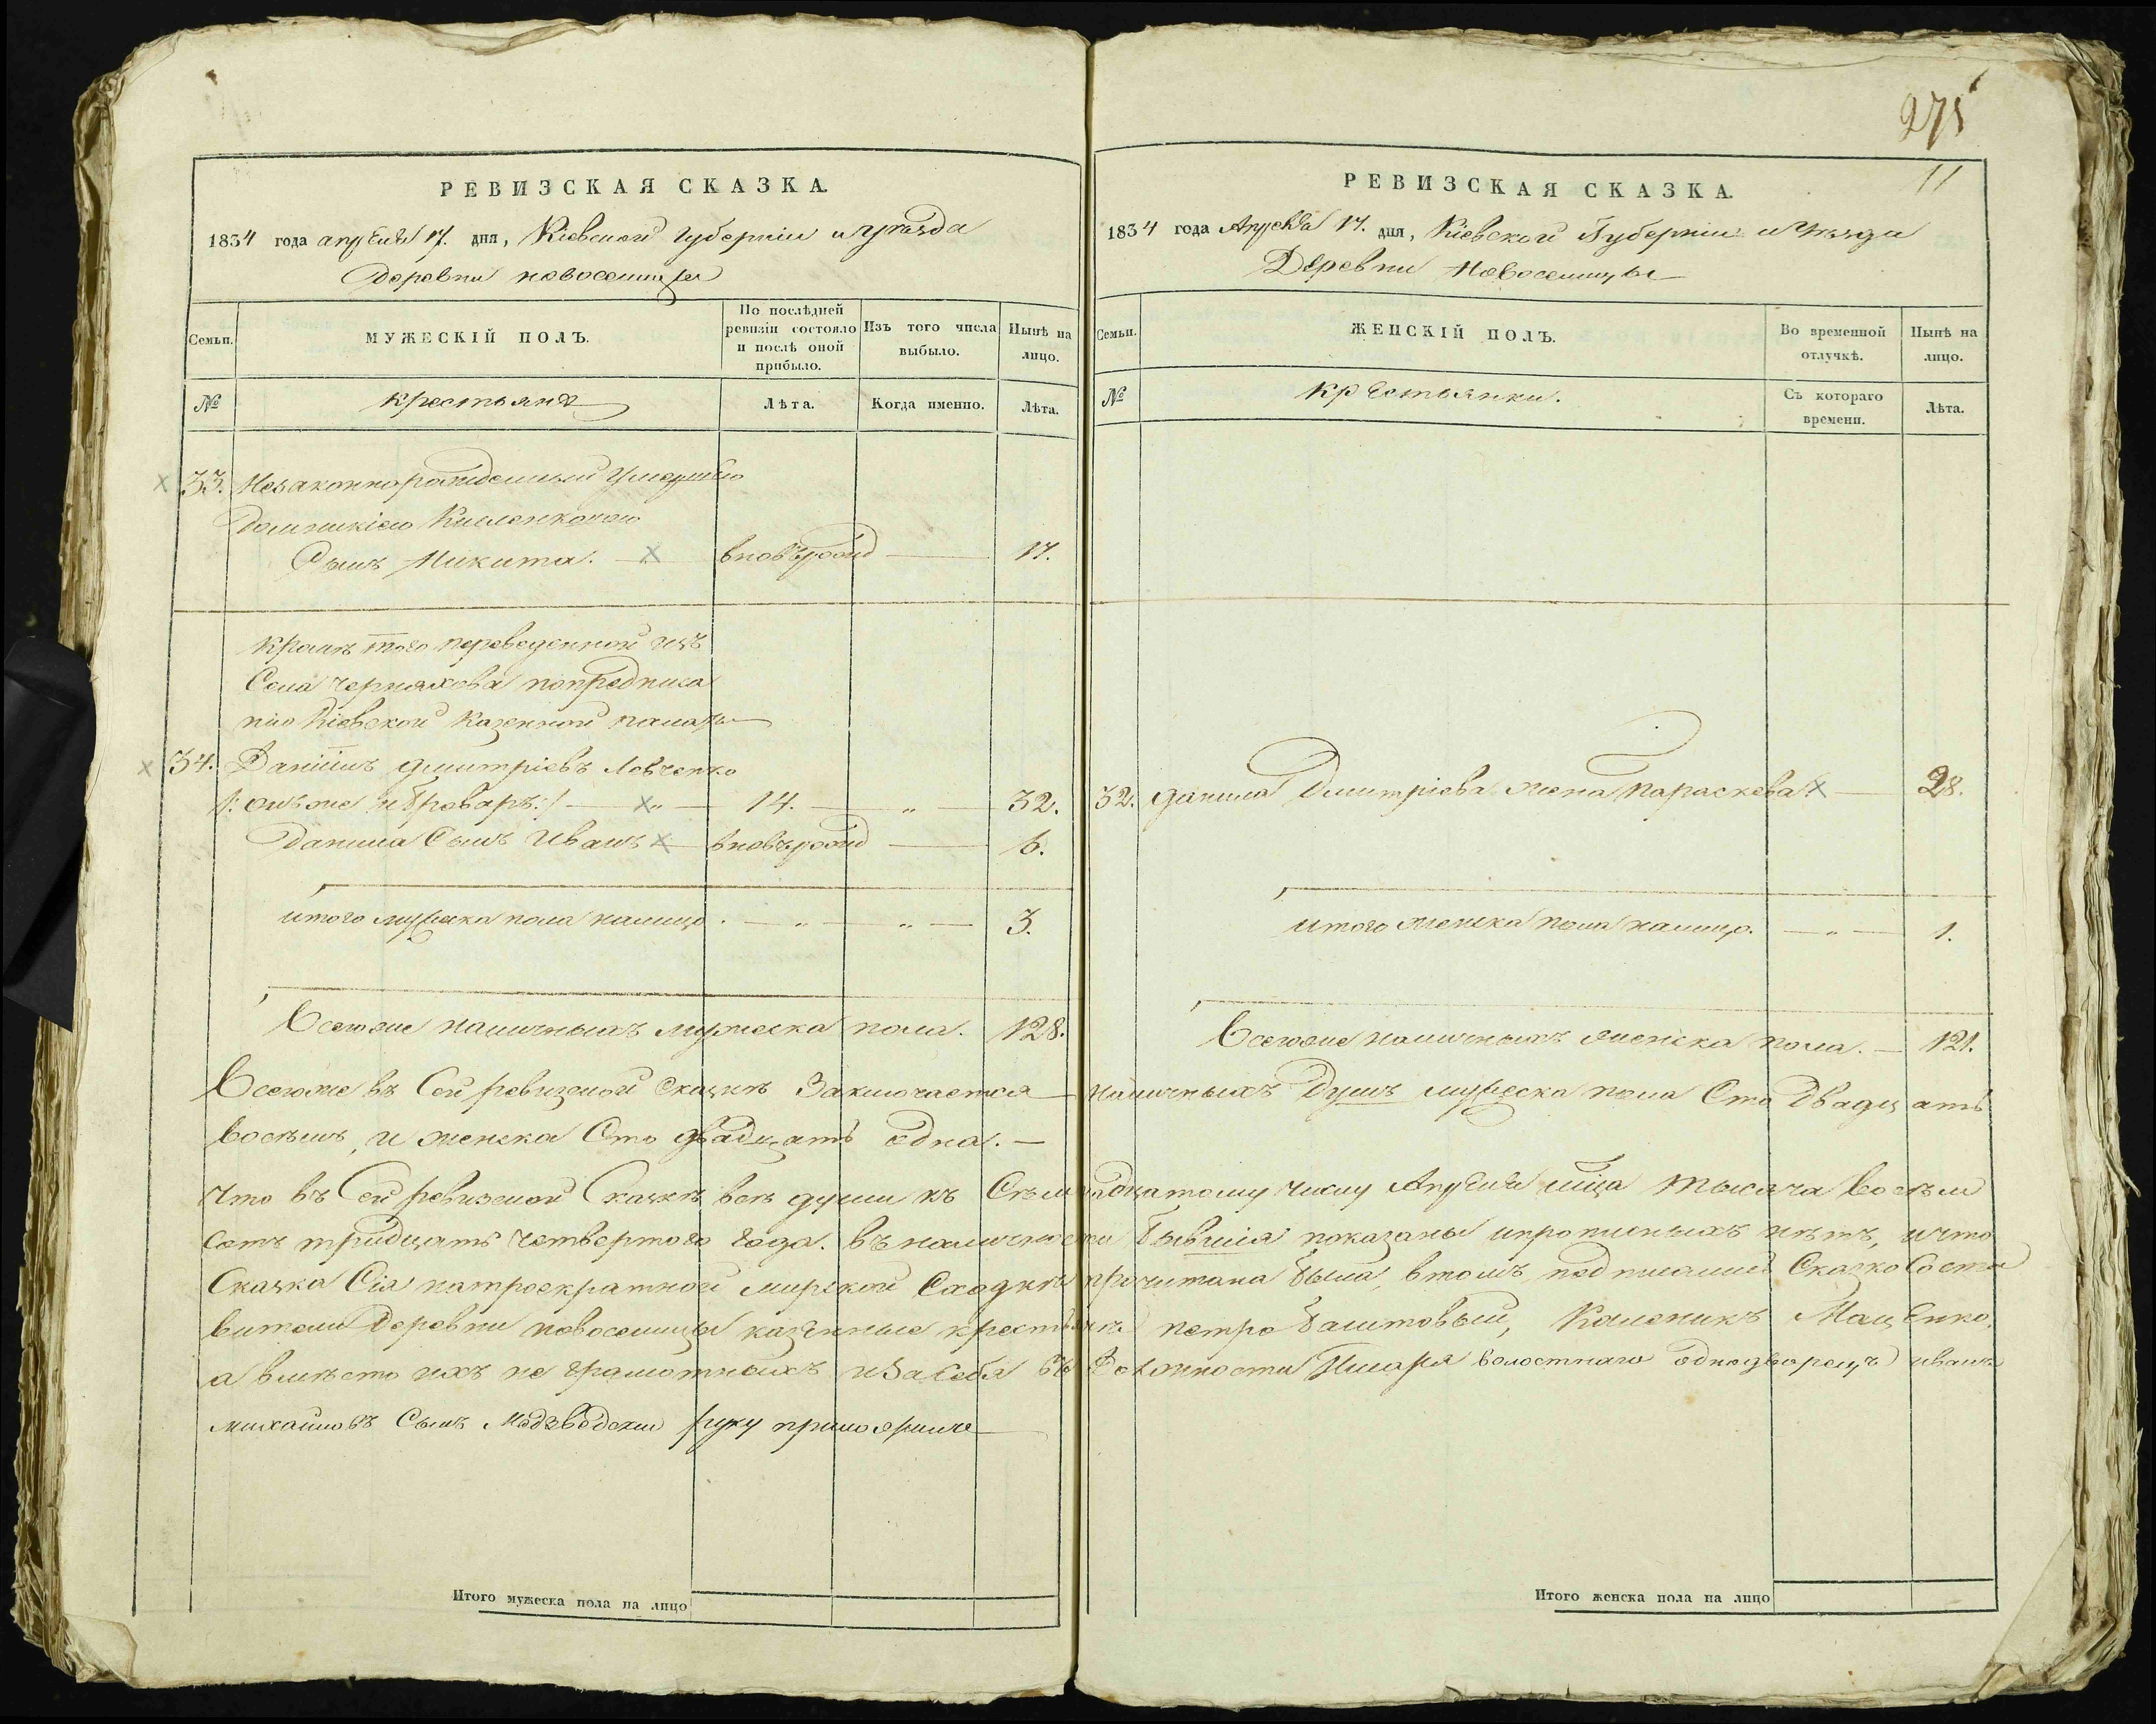 275
11
РЕВИЗСКАЯ СКАЗКА.
1834 года апреля 17. дня, Кіевской губерніи и уезда
Деревни новоселицы
Семьи.
МУЖЕСКІЙ ПОЛЪ.
По послѣдней ревизіи состояло и послѣ оной прибыло.
Изъ того числа выбыло.
Нынѣ на лицо.
№
крестьяне
Лѣта.
Когда именно.
Лѣта.
33. Незаконнорожденный умершею
Домникіею
Сынъ Никита. вновьрожд 17.
Кромѣ того переведенной изъ
Села Черняхова попредписа
нію Кіевской Казенной палаты
34. Даніилъ Дмитріевъ Левченко
/: онъже и Броваръ :/ 14. „ 32.
Данила Сынъ Иванъ вновьрожд 6.
итого мужеска пола налицо. „ „ 3.
Всегоже наличныхъ мужеска пола. 128.
РЕВИЗСКАЯ СКАЗКА.
1834 года Апреля 17. дня, Кіевской Губерніи и уезда
Деревни Новоселицы
Семьи.
ЖЕНСКІЙ ПОЛЪ.
Во временной отлучкѣ.
Нынѣ на лицо.
№
Крестьянки.
Съ котораго времени.
Лѣта.
32. Данила Дмитріева жена Параскева 28.
итого женска пола налицо. „ 1.
Всегоже наличныхъ женска пола. 121.
Всегоже въ Сей ревизской Сказкѣ Заключается наличныхъ Душъ мужеска пола Сто Двадцать
восемь, и женска Сто двадцать одна.
Что въ Сей ревизской Сказкѣ всѣ души къ Семнадцатому числу Апреля мѣца тысяча восемь
сотъ тридцать четвертого года. въ наличности бывшія показаны ипрописныхъ нѣтъ, ичто
Сказка Сія натроекратной мирской Сходкѣ прочитана была, втомъ Сказко Соста
вители Деревни новоселицы казенные крестьяне петро Баштовый, Каленикъ Маценко,
а вмѣсто ихъ не грамотныхъ иЗа Себя въ Должности Писаря волостнаго однодворецъ иванъ
михайловъ Сынъ руку приложилъ
Итого мужеска пола на лицо
Итого женска пола на лицо